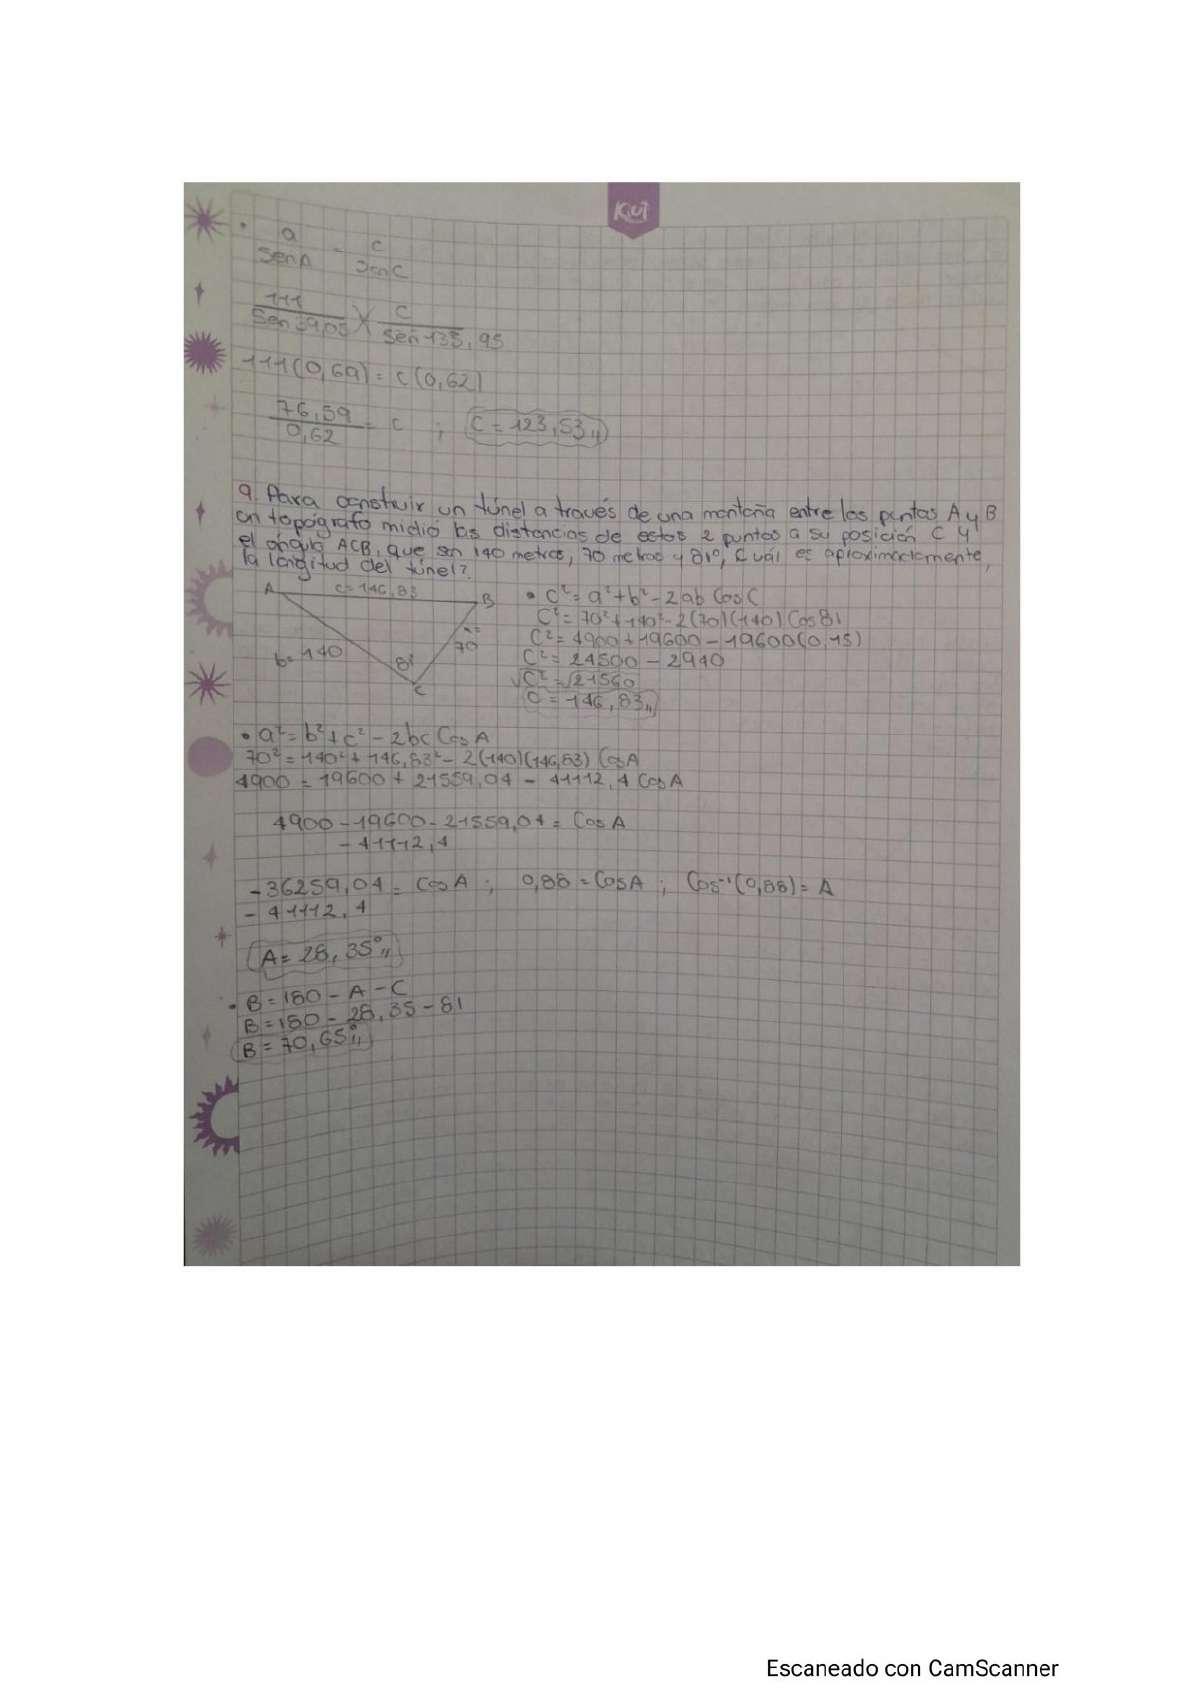 Kut
a/SenA = c/SenC
111/Sen 39,05 = C/Sen 135,95
111(0,69) = C(0,62)
76,59/0,62 = C ; C = 123,53,,
9. Para construir un túnel a través de una montaña entre los puntos A y B
un topógrafo midió las distancias de estos 2 puntos a su posición C y
el ángulo ACB, que son 140 metros, 70 metros y 81°, Cuál es aproximadamente,
la longitud del túnel?
A c=146,83 B
b=140 81 a=70
C
• C²= a²+b²-2ab CosC
C²= 70²+140²-2(70)(140) Cos81
C²= 4900+19600-19600(0,15)
C²= 24500-2940
√C²=√21560
C=146,83,,
• a²=b²+c²-2bc CosA
70²=140²+146,83²-2(140)(146,83) CosA
4900=19600+21559,04-41112,4 CosA
4900-19600-21559,04 = CosA
-41112,4
-36259,04 = CosA ; 0,88=CosA ; Cos⁻¹(0,88)=A
-41112,4
A=28,35°,,
• B=180-A-C
B=180-28,35-81
B=70,65°,,
Escaneado con CamScanner